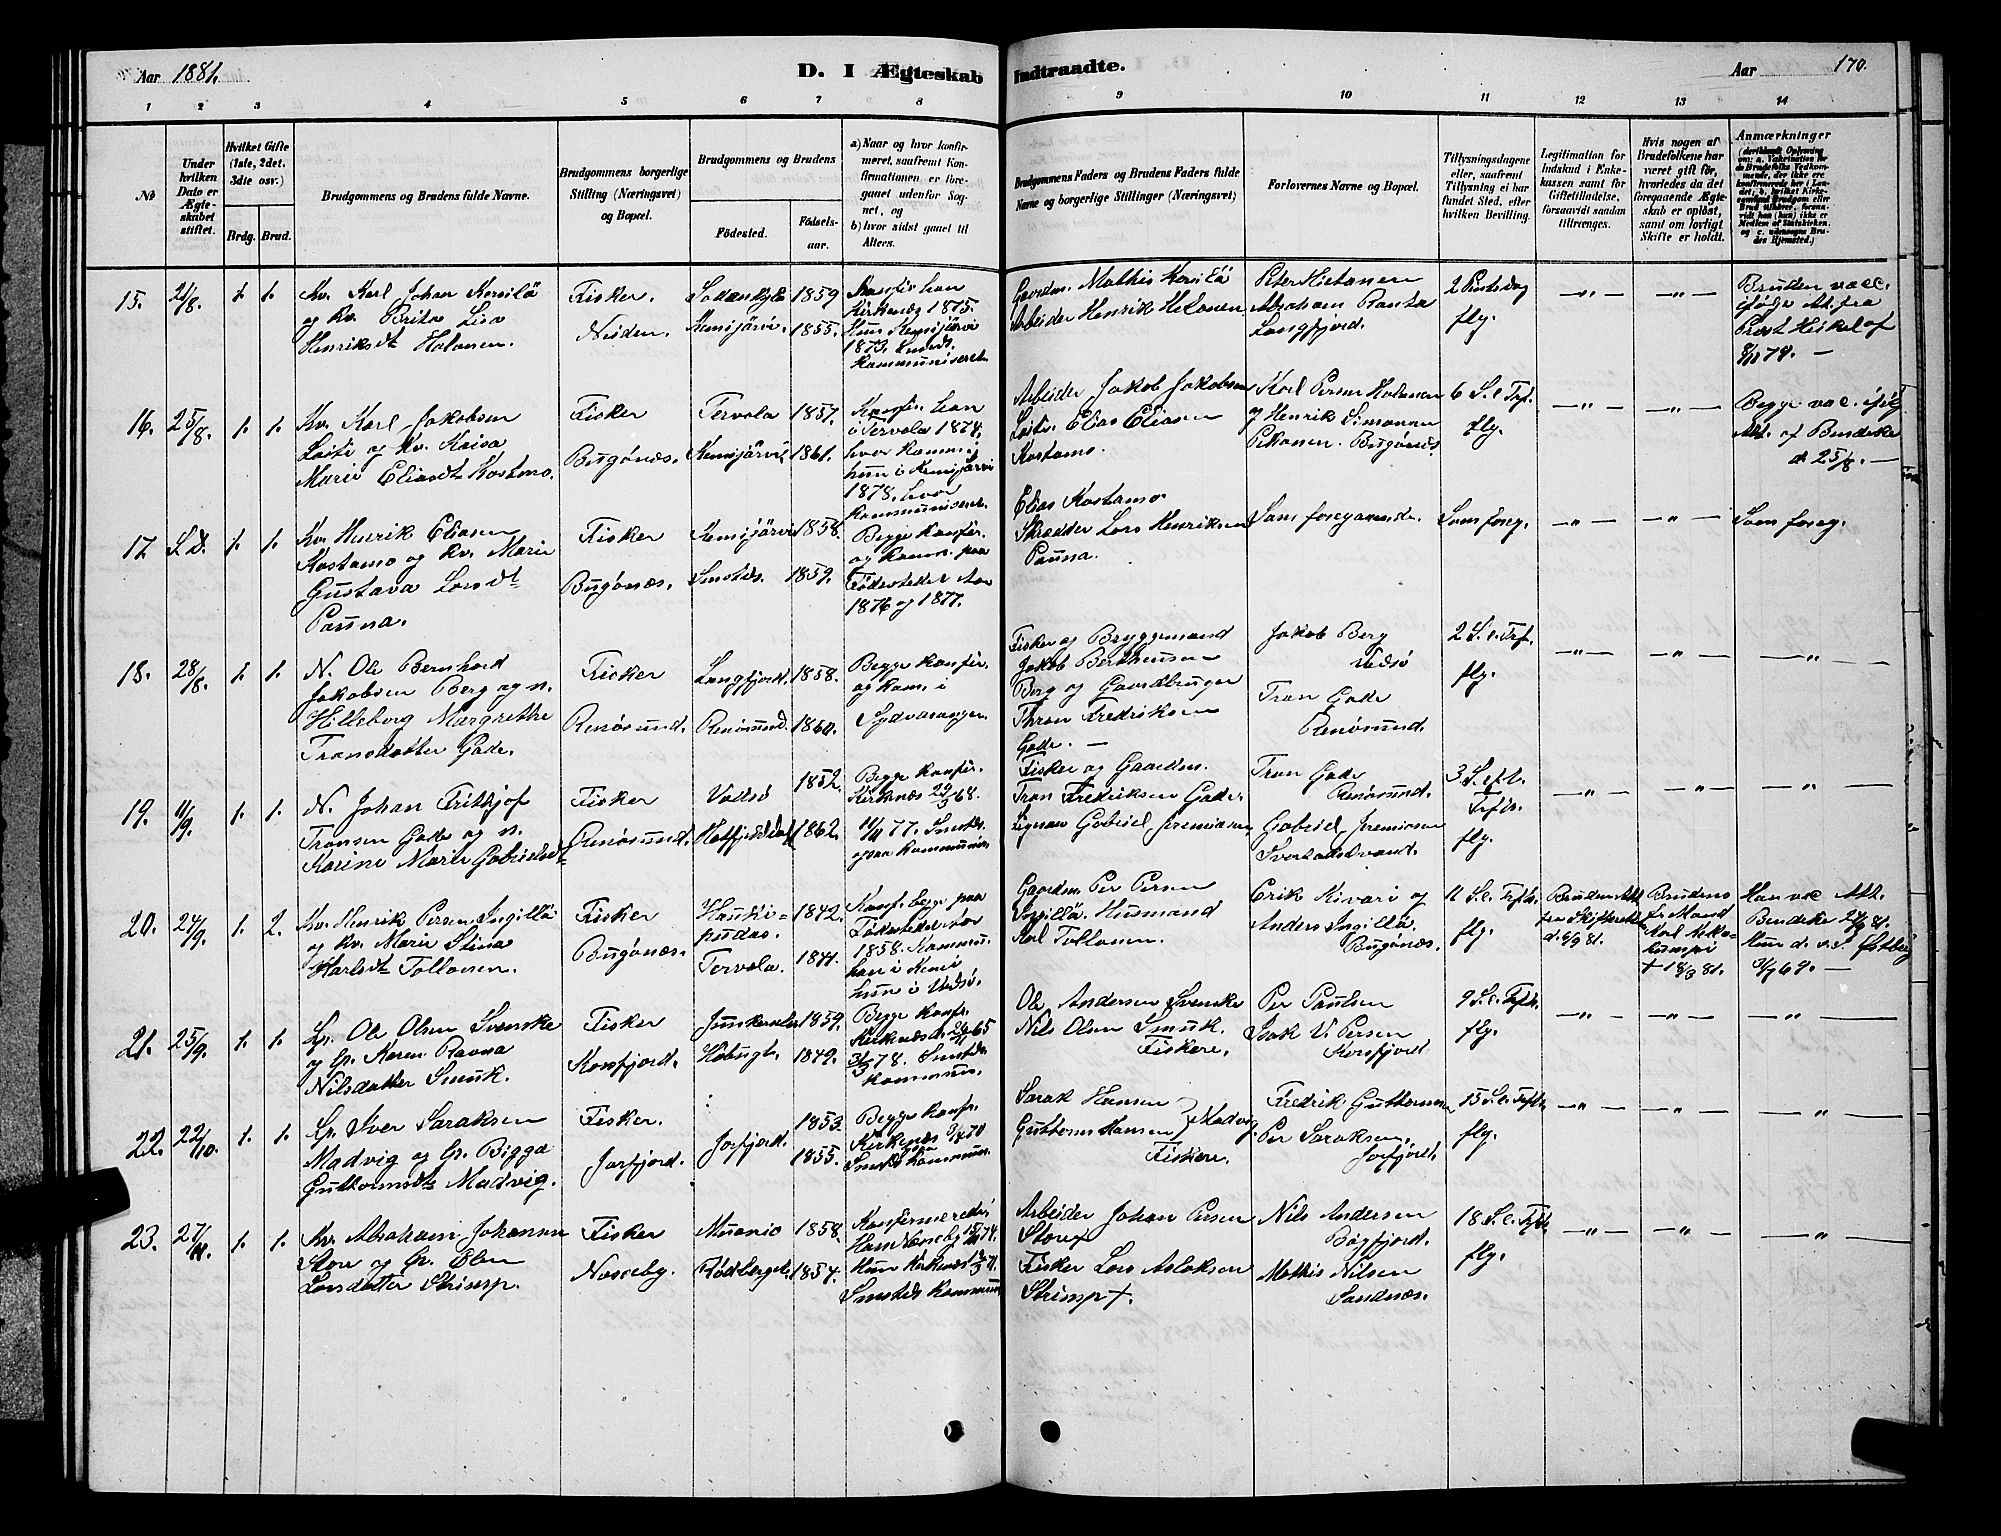 Aar 1881.
D. I Ægteskab Indtraadte.
Aar 170.
1 2 3 4 5 6 7 8 9 10 11 12 13 14
No
Under hvilken Dato er Ægteskabet stiftet.
Hvilket Gifte (1ste, 2det, 3die osv.)
Brdg. Brud.
Brudgommens og Brudens fulde Navne.
Brudgommens borgerlige Stilling (Næringsvei) og Bopæl.
Brudgommens og Brudens
Fødested.
Fødselsaar.
a) Naar og hvor konfirmeret, saafremt Konfirmationen er foregaaet udenfor Sognet, og
b) hvor sidst gaaet til Alters.
Brudgommens Faders og Brudens Faders fulde Navne og borgerlige Stillinger (Næringsvei)
Forlovernes Navne og Bopæl.
Tillysningsdagene eller, saafremt Tillysning ei har fundet Sted, efter hvilken Bevilling.
Legitimation for Indskud i Enkekassen samt for Giftetilladelse, forsaavidt saadan tiltrænges.
Hvis nogen af Brudefolkene har været gift før, hvorledes da det foregaaende Ægteskab er opløst, samt om lovligt Skifte er holdt.
Anmærkninger
15. 21/8. 1. 1.
Kv. Karl Johan Kersilö
og Kv. Brita Lisa
Henriksdt Halonen.
Fisker.
Neiden.
Sodankylä 1859
Kemijärvi 1855.
Konfir. han
Kirkenæs 1875.
Hun Kemijärvi
1873. Smsts.
kommuniseret.
Gaardm. Mathis Kersilö
Arbeider Henrik Halonen
Peter Hietanen
Abraham Ranta
Langfjord.
2 Pintsdag
flg.
—"— —"—
Bruden vacc.
ifølge At. fra
Prost Heikel af
8/11 78. —
16. 25/8. 1. 1.
Kv. Karl Jakobsen
Laiti og Kv. Kaisa
Marie Eliasdt Kostamo.
Fisker
Bugønæs.
Tervola 1857.
Kemijärvi 1861.
Konfir. han
i Tervola 1874.
hvor komm.
hun i Kemijärvi
1878. hvor
kommuniseret.
Arbeider Jakob Jakobsen
Laiti. Elias Eliasen
Kostamo.
Karl Persen Halonen
og Henrik Simonsen
Pekonen. Bugønæs.
6 S. e. Trf.
flg.
—"— —"—
Begge vac. ifølg
At. af Bendeke
d. 25/8. —
17. S. D. 1. 1.
Kv. Henrik Eliasen
Kostamo og Kv. Marie
Gustava Larsdt
Pauna.
Fisker
Bugønæs.
Kemijärvi 1858.
Smstds. 1859.
Begge konfir.
og komm. paa
Fødestedet Aar
1876 og 1877.
Elias Kostamo
Skrædder Lars Henriksen
Pauna.
Som foregaaende.
Som foreg.
—"— —"—
Som foreg.
18. 28/8. 1. 1.
N. Ole Bernhard
Jakobsen Berg og n.
Hilleborg Margrethe
Transdatter Gade.
Fisker
Renøsund.
Langfjord. 1858.
Renøsund. 1860.
Begge konfir.
og kom. i
Sydvaranger.
Fisker og Bryggemand
Jakob Bertheusen
Berg og Gaardbruger
Thran Fredriksen
Gade. —
Jakob Berg
Vadsø
Tran Gade
Renøsund.
2 S. e. Trf.
flg.
—"— —"— —"—
19. 11/9. 1. 1.
N. Johan Frithjof
Transen Gade og n.
Karine Marie Gabrielsdt
Fisker
Renøsund.
Vadsø 1852.
Hatfjelddal 1862.
Begge konfir.
Kirkenæs 29/3 68.
11/11 77. Smsts.
ogsaa kommunis.
Fisker og Gaardm.
Tran Fredriksen Gade.
Lignan Gabriel Jeremiasen
Tran Gade
Renøsund.
Gabriel Jeremiasen
Svartaksvand.
3 S. eft.
Trfts.
flg.
—"— —"— —"—
20. 24/9. 1. 2.
Kv. Henrik Persen Ingillä
og Kv. Maria Stina
Karlsdt Tollonen.
Fisker
Bugønæs.
Haukipudas. 1842.
Tervola. 1841.
Konf. begge paa
Fødestedet Aar
1858. Kommun.
han i Kemi
hun i Vadsø.
Gaardm. Per Persen
Ingillä. Husmand
Karl Tollonen.
Erik Kivari og
Anders Ingillä.
Bugønæs.
11 S. e. Trfts.
flg.
Bruden Att.
fra Skifteretten
d. 6/9 81.
Brudens
fr. Mand
Karl
† 18/3 81.
Han vac. Att.
Bendeke 24/9 81.
Hun d. v. s. Østberg
31/7 69. —
21. 25/9. 1. 1.
Lp. Ole Olsen Svenske
og Lp. Karen Ravna
Nilsdatter Smuk.
Fisker
Korsfjord.
Junkerelv 1859.
Høbugt. 1849.
Begge konfr.
Kirkenæs d. 24/9 65
31/3 78. Smstds.
kommunis.
Ole Andersen Svenske
Nils Olsen Smuk.
Fiskere.
Per Paulsen
Isak V. Persen
Korsfjord
9 S. e. Trfts.
flg.
—"— —"— —"—
22. 22/10. 1. 1.
Lp. Iver Saraksen
Madvig og Lp. Bigga
Guttormsdt Madvig.
Fisker.
Jarfjord.
Jarfjord. 1853.
1855.
Begge konfr.
Kirkenæs 3/4 70
Smsts kommun.
Sarak Hansen
Guttorm Hansen } Madvig
Fiskere.
Fredrik Guttormsen
Per Saraksen.
Jarfjord.
15 S. e. Trfts.
flg.
—"— —"— —"—
23. 27/11. 1. 1.
Kv. Abraham Johansen
Stors og Lp. Elen
Larsdatter Strimp.
Fisker
Næsseby.
Muonio 1858.
Rødberget 1854.
Konfirmerede:
Han Næsseby
Hun Kirkenæs
Smstds kommun
Arbeider Johan Persen
Stors
Fisker Lars Aslaksen
Strimp †.
Nils Andersen
Bøgfjord.
Mathis Nilsen
Sandnæs.
18 S. e. Trfts.
flg.
—"— —"— —"—